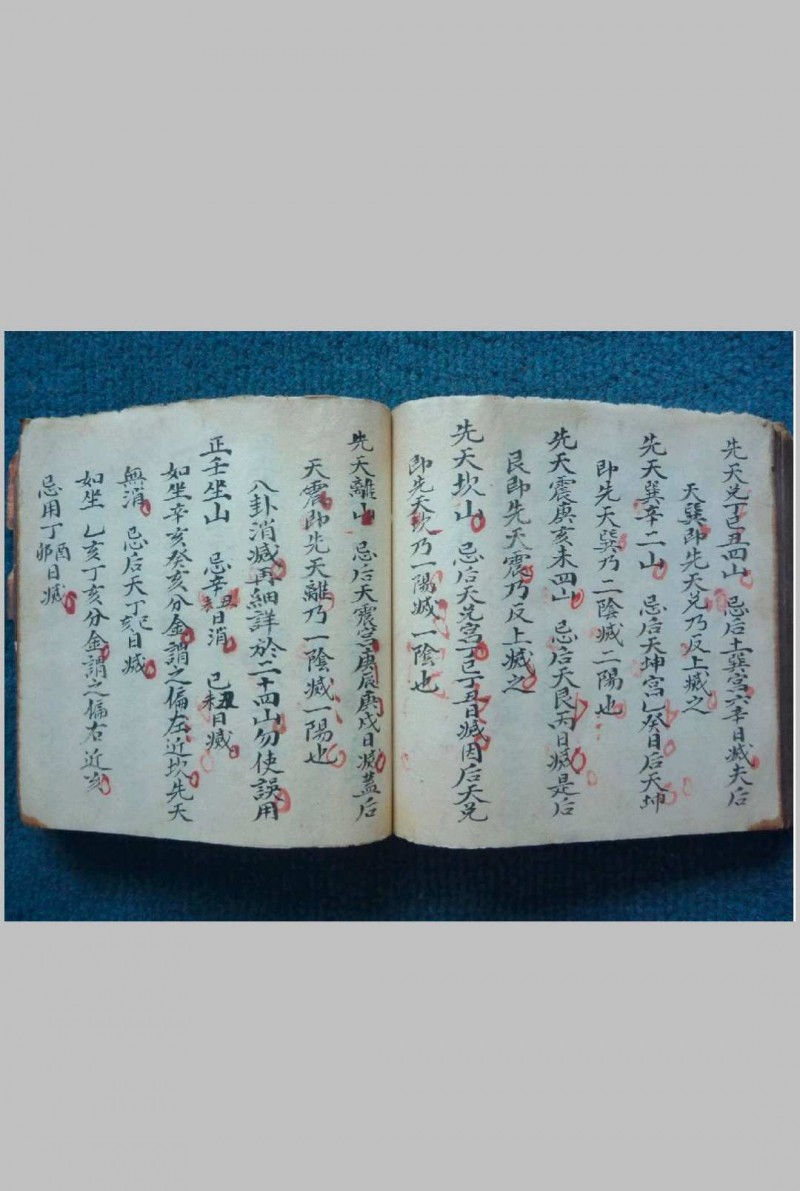 先天兑丁巳丑四山　忌后土巽宫六辛日滅夫后
天巽即先天兑乃反上滅之
先天巽辛二山　忌后天坤宫乙癸日后天坤
即先天巽乃二陰滅二陽也
先天震庚亥未四山　忌后天艮丙日滅是后
艮即先天震乃反上滅之
先天坎山　忌后天兑宫丁巳丁丑日滅因后天兑
即先天坎乃一陽滅一陰也
先天離山　忌后天震宫庚辰庚戌日滅盖后
天震即先天離乃一陰滅一陽也
八卦消滅再細詳於二十四山勿使誤用
正壬坐山　忌辛丑日消　己丑未日滅
如坐辛亥癸亥分金謂之偏左近坎先天
無消　忌后天丁巳亥日滅
如坐乙亥丁亥分金謂之偏右近亥
忌用丁酉卯日滅